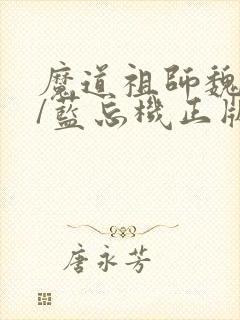 魔道祖師魏
/藍忘機正版
唐永芳